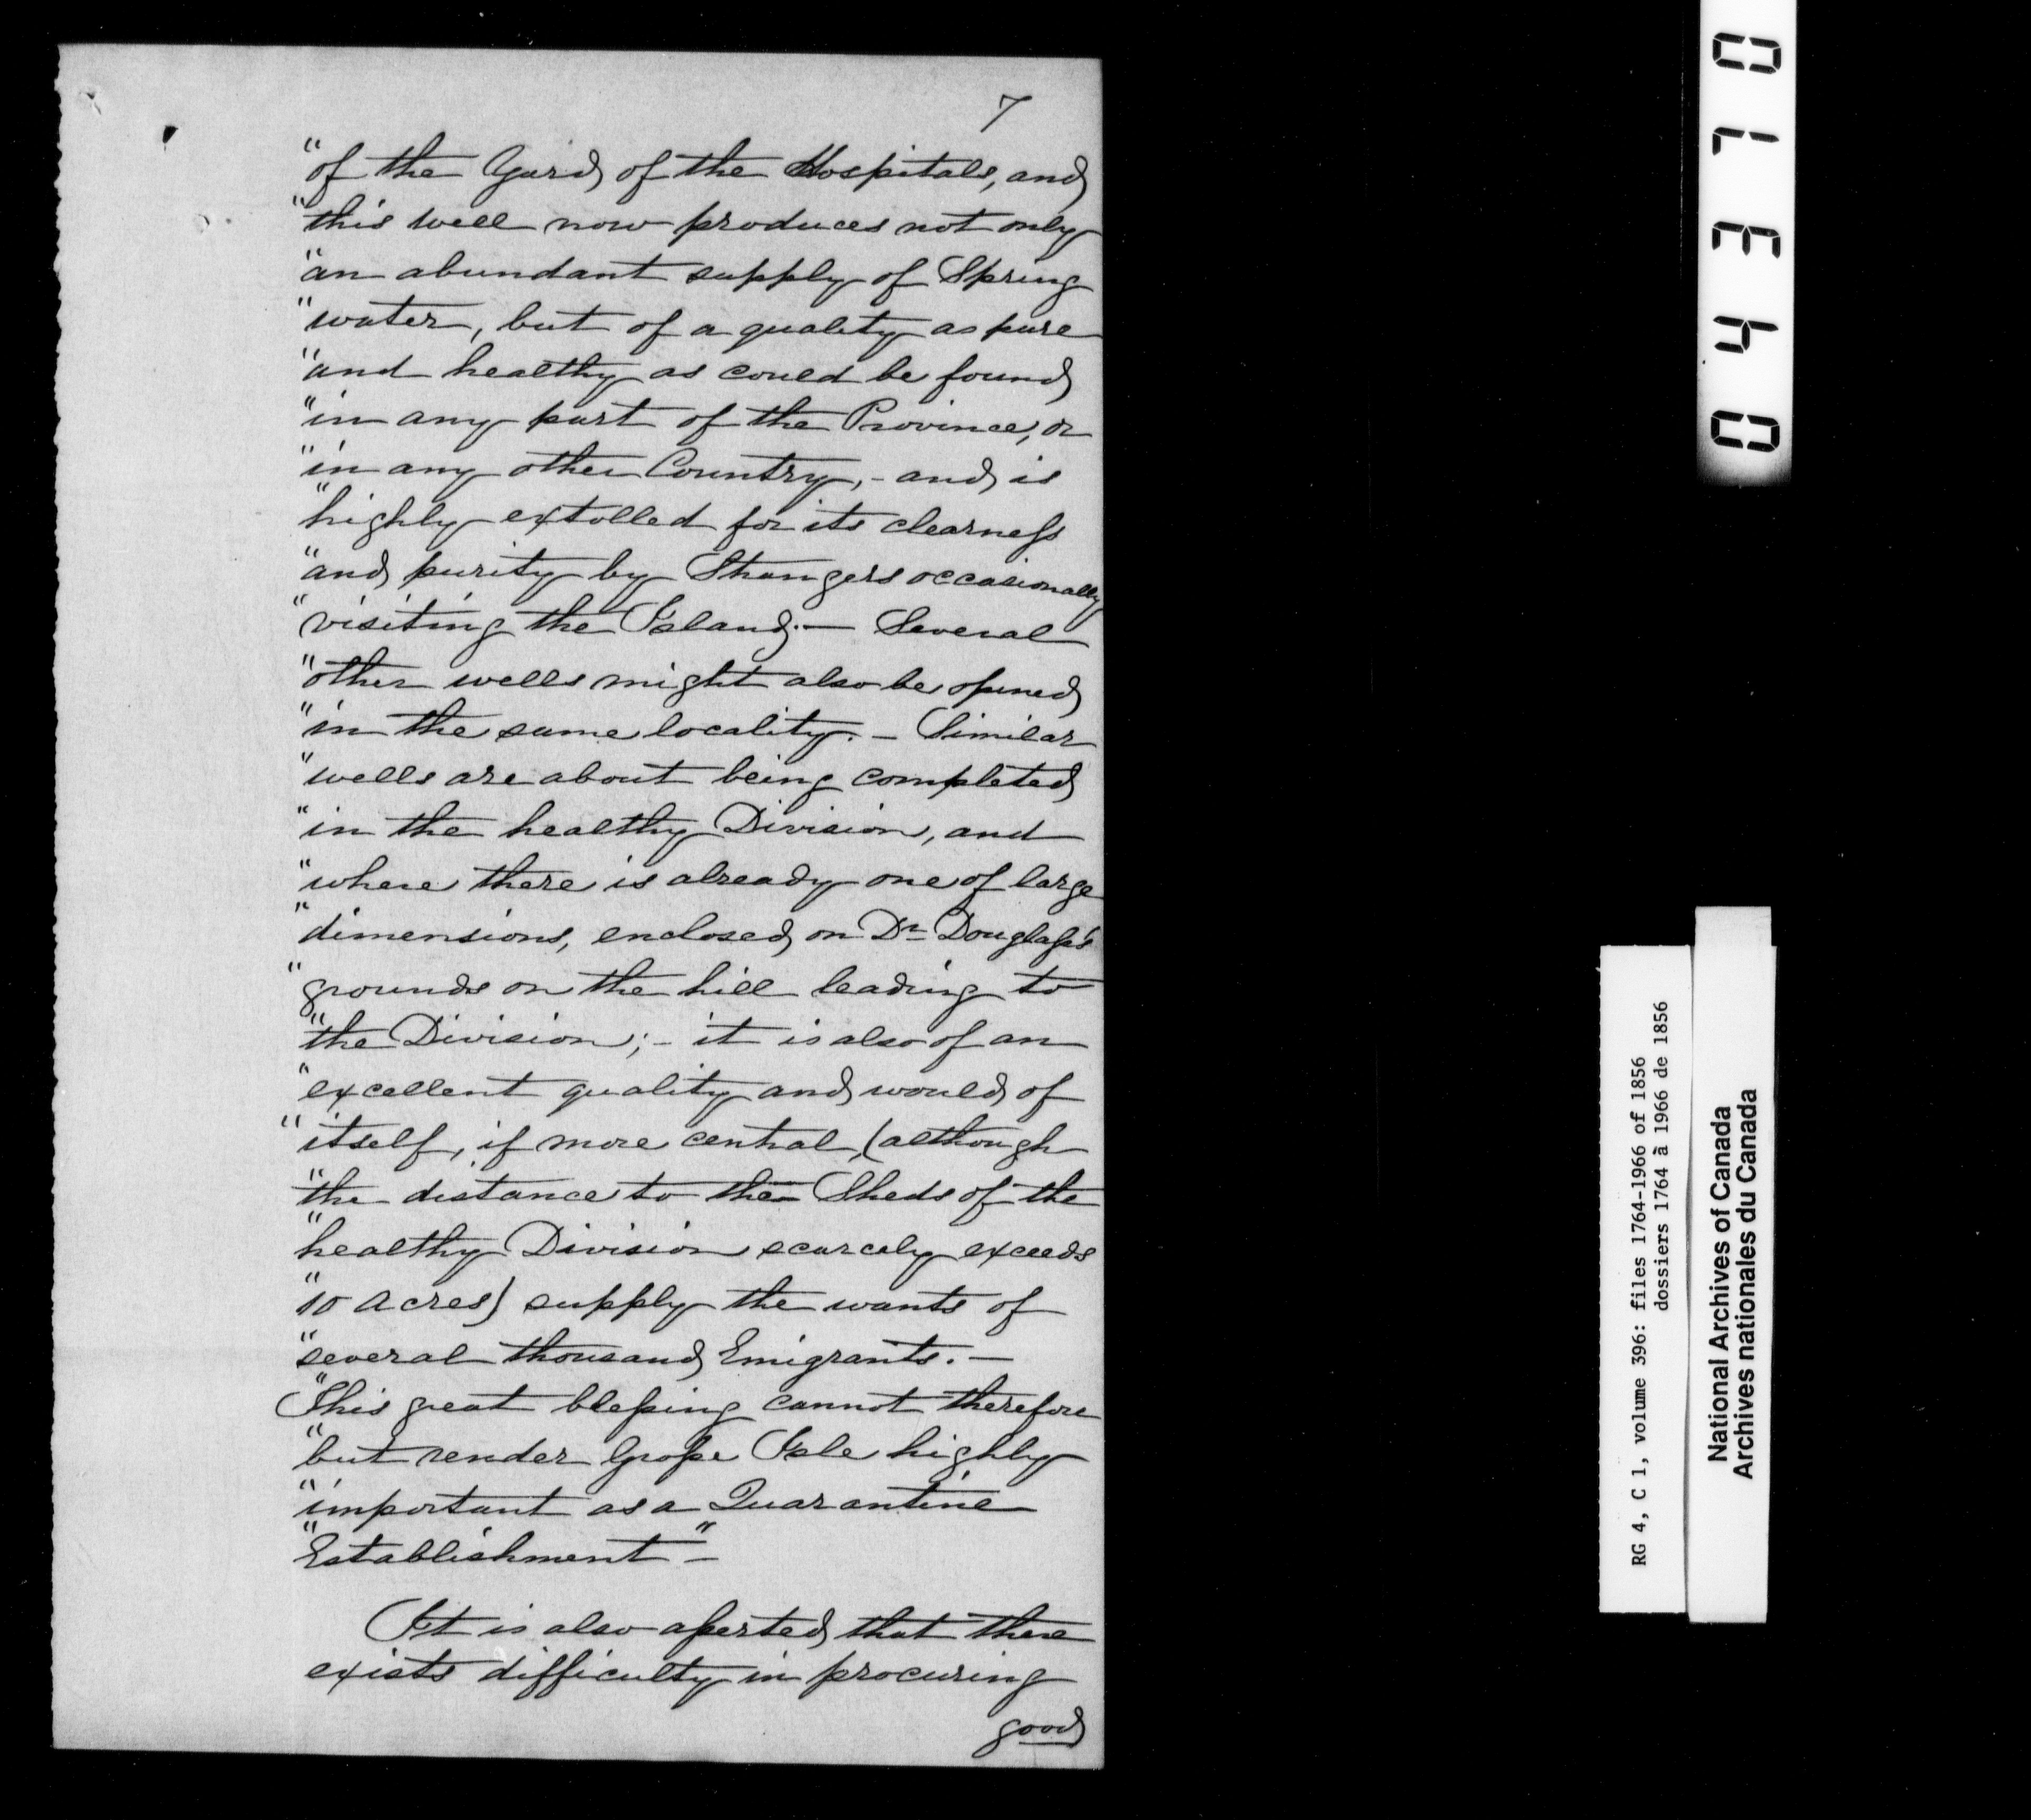 7
"of the Yard, of the Hospitals, and
"this well now produces not only
"an abundant supply of Spring
"water, but of a quality as pure
"and healthy as could be found
"in any part of the Province, or
"in any other Country, - and is
"highly extolled for its clearneſs
"and purity by Strangers occasionally
"visiting the Island. — Several
"other wells might also be opened
"in the same locality. – Similar
"wells are about being completed
"in the healthy Division, and
"where there is already one of large
"dimensions, enclosed on Dr Douglaſs's
"grounds on the hill leading to
"the Division; - it is also of an
"excellent quality and would of
"itself, if more central, (although
"the distance to the Sheds of the
"healthy Division scarcely exceeds
"10 acres) supply the wants of
"several thousand Emigrants. —
"This great bleſsing cannot therefore
"but render Groſse Isle highly
"important as a Quarantine
"Establishment" –
It is also aſserted that there
exists difficulty in procuring
good
04370
RG 4, C 1, volume 396: files 1764-1966 of 1856
dossiers 1764 à 1966 de 1856
National Archives of Canada
Archives nationales du Canada